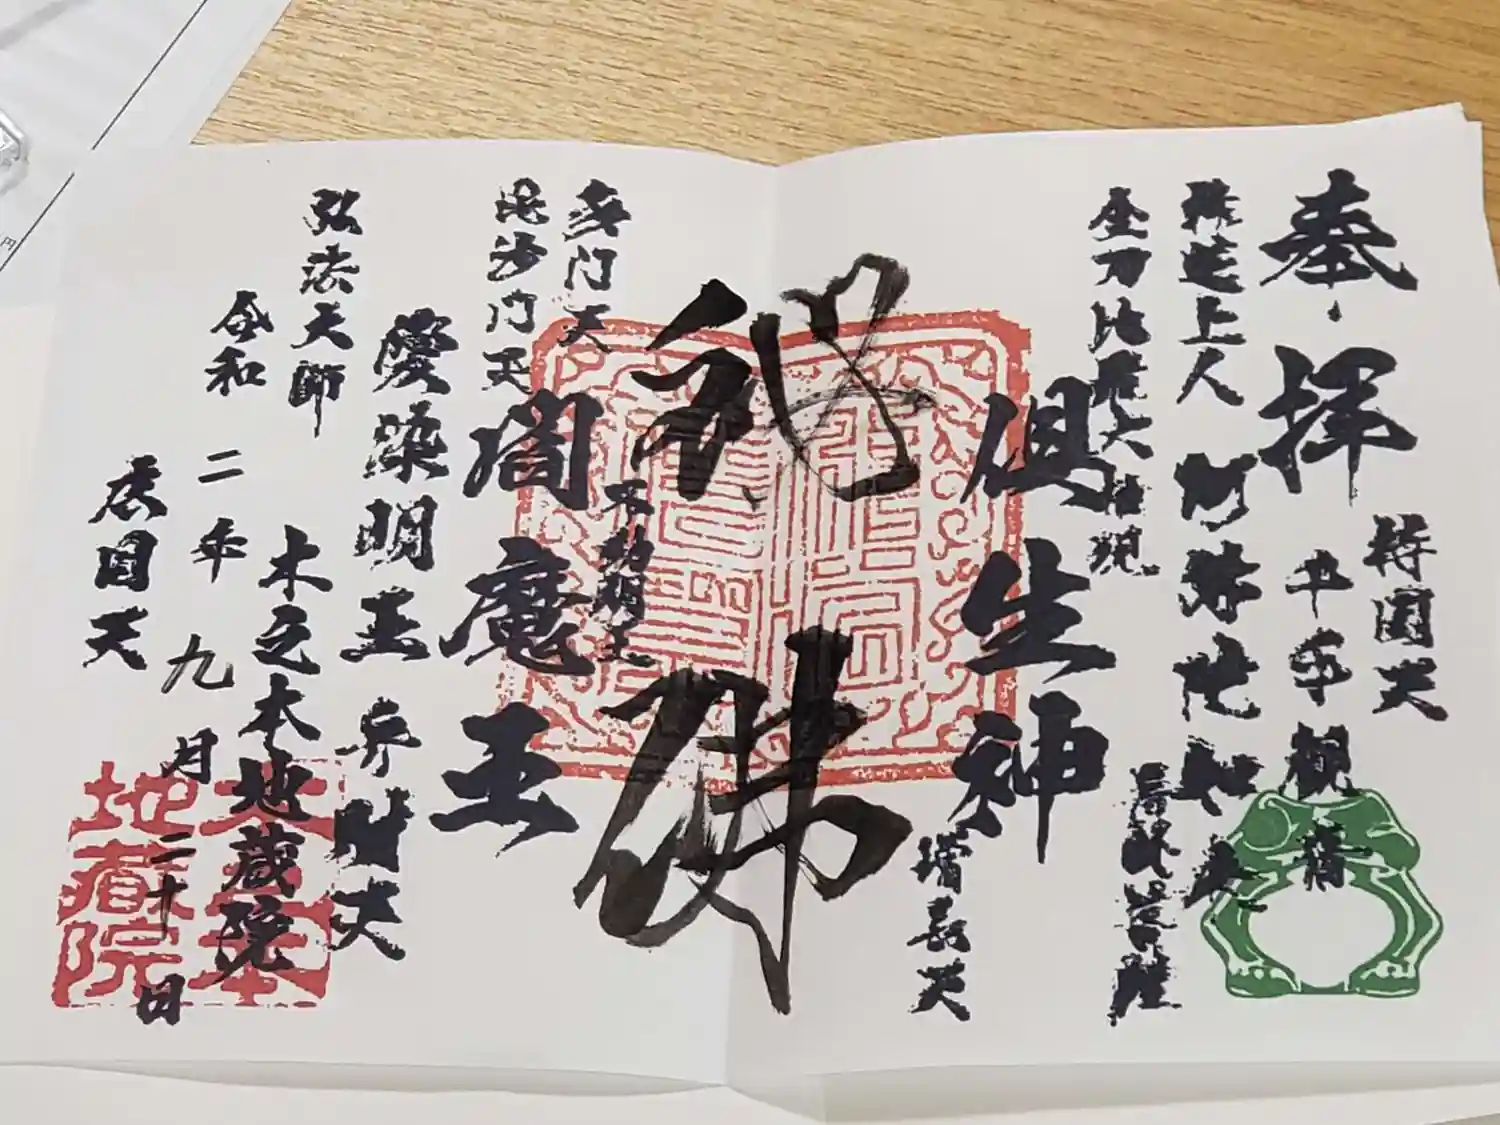 奉拝
持国天
千手観音
釋迢上人
阿弥陀如来
金刀比羅大権現
倶生神
増長天
秘佛
不動明王
多門天
毘沙門天
閻魔王
愛染明王
弁財天
弘法大師
木之本地蔵院
令和二年九月二十日
広目天
木之本
地蔵院